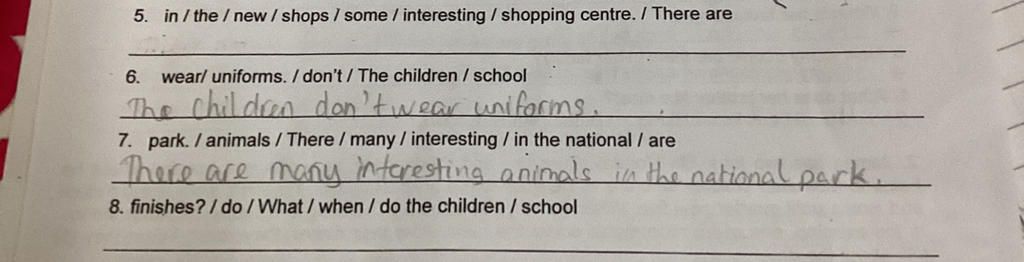 5. in / the / new / shops / some / interesting / shopping centre. / There are
6. wear/ uniforms. / don't / The children / school
The children don't wear uniforms.
7. park. / animals / There / many / interesting / in the national / are
There are many interesting animals in the national park.
8. finishes? / do / What / when / do the children / school